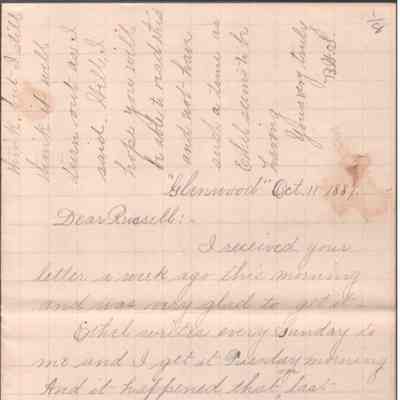 think. but I still
think it will
turn out as I
said. Well I
hope you will
be able to read this
and not have
such a time as
Ethel seems to be
having
Yours very truly
"Glenwood" Oct. 11 1887.
Dear Russell:-
I received your
letter a week ago this morning
and was very glad to get it.
Ethel writes every Sunday to
me and I get it Tuesday morning
And it happened that last